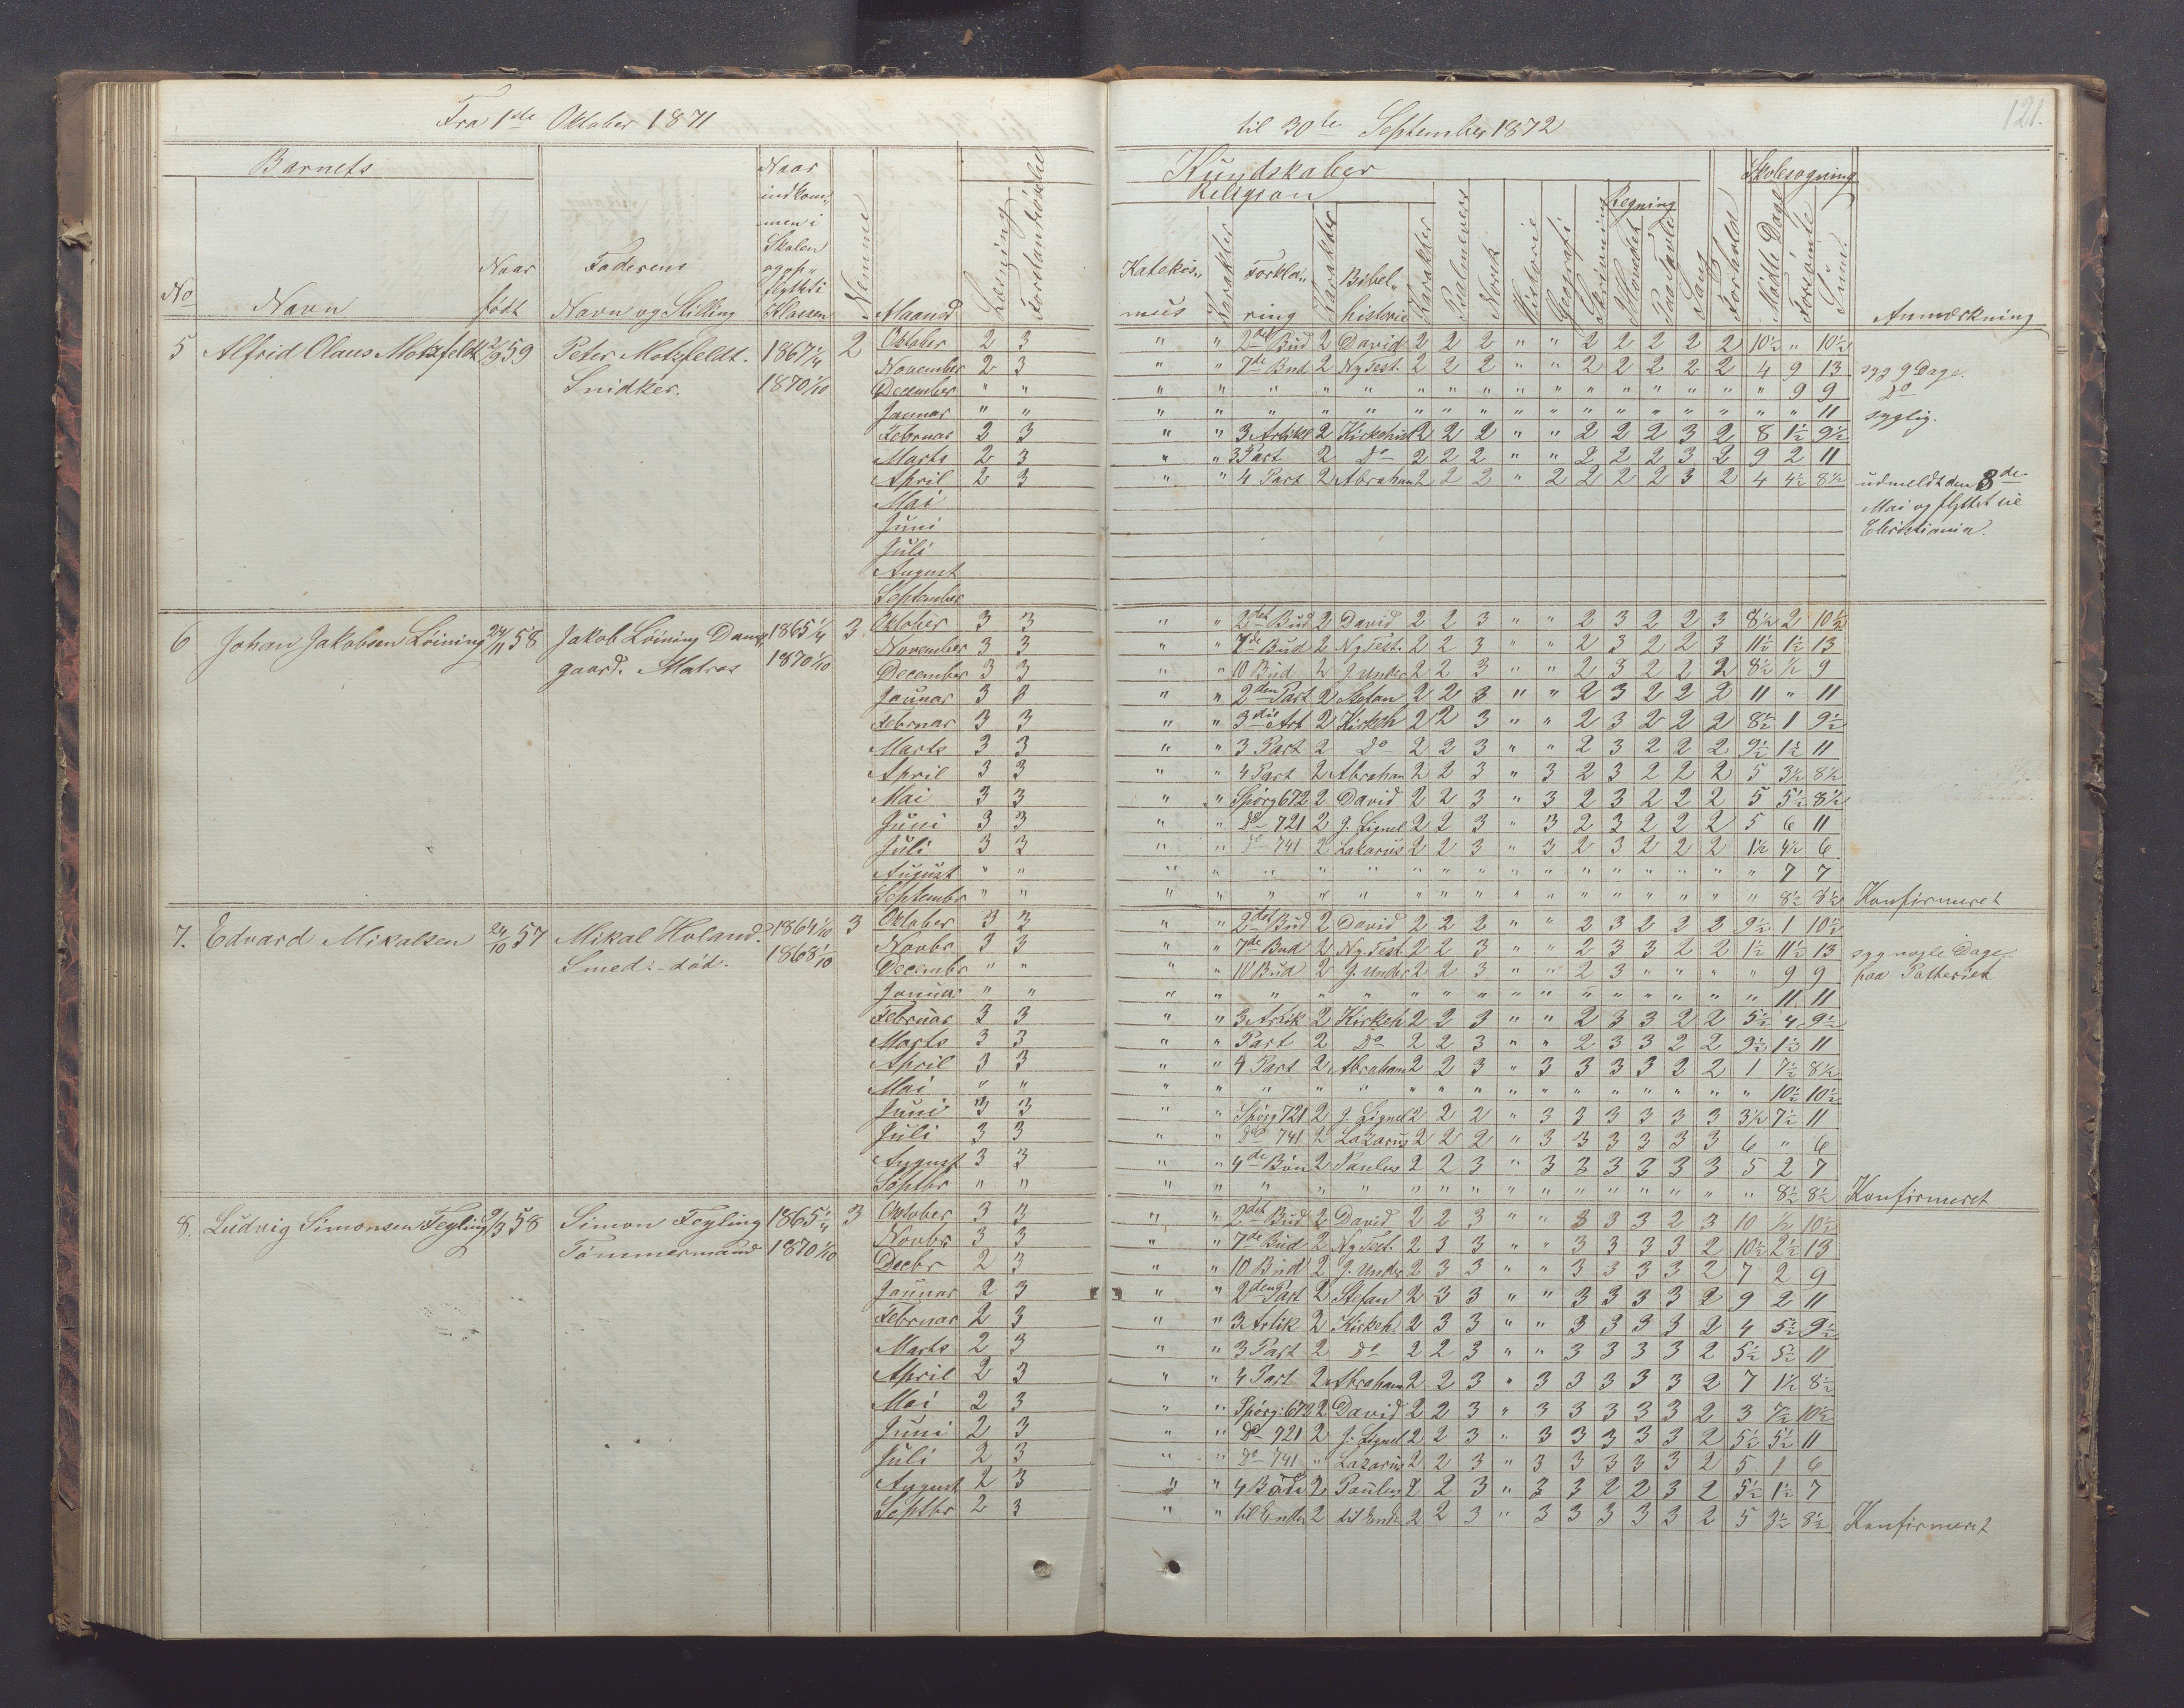 Fra 1ste Oktober 1871
til 30te September 1872
121.
Barnets
Kundskaber
Skolesøgning
Religion
Regning
No Navn Naar født Faderens Navn og Stilling Naar indkom„ men i Skolen og op„ flyttet i Klassen Nemme Maaned Læsning Forstandsøvelse
Katekis„ mus Karakter Forkla„ ring Karakter Bibel„ historie Karakter Psalmevers Norsk Historie Geografi Skrivning Hovedet Paa Tavle Sang Forhold Mødte Dage Forsømte Sum Anmærkning
5 Alfrid Olaus Motzfeldt 2/9 59 Peter Motzfeldt. 1867 1/4 2 Oktober 2 3 " " 2det Bud 2 David 2 2 2 " " 2 2 2 2 2 10½ " 10½
Snidker. 1870 1/10 November 2 3 " " 7de Bud 2 Ny Test. 2 2 2 " " 2 2 2 2 2 4 9 13 syg 9 Dage.
December " " " " " " " " " " " " " " " " " " 9 9 Do
Januar " " " " " " " " " " " " " " " " " " " 11 syglig.
Februar 2 3 " " 3 Artikl 2 Kirkehist 2 2 2 " " 2 2 2 3 2 8 1½ 9½
Marts 2 3 " " 3 Part 2 Do 2 2 2 " " 2 2 2 3 2 9 2 11
April 2 3 " " 4 Part 2 Abraham 2 2 2 " 2 2 2 2 3 2 4 4½ 8½ udmeldt den 8de
Mai Mai og flyttet til
Juni Christiania.
Juli
August
September
6 Johan Jakobsen Löining 24/11 58 Jakob Löining Dams„ 1865 1/4 3 Oktober 3 3 " " 2det Bud 2 David 2 2 3 " " 2 3 2 2 3 8½ 2 10½
gaard. Matros 1870 1/10 November 3 3 " " 7de Bud 2 Ny Test. 2 2 3 " " 2 3 2 2 3 11½ 1½ 13
December 3 3 " " 10 Bud 2 J. Under 2 2 3 " " 2 3 2 2 2 8½ ½ 9
Januar 3 3 " " 2den Part 2 Stefan 2 2 3 " " 2 3 2 2 2 11 " 11
Februar 3 3 " " 3die Art 2 Kirkeh 2 2 3 " " 2 3 2 2 2 8½ 1 9½
Marts 3 3 " " 3 Part 2 Do 2 2 3 " " 2 3 2 2 2 9½ 1½ 11
April 3 3 " " 4 Part 2 Abraham 2 2 3 " 3 2 3 2 2 2 5 3½ 8½
Mai 3 3 " " Spörg 672 2 David 2 2 3 " 3 2 3 2 2 2 5 5½ 8½
Juni 3 3 " " Do 721 2 J. Lignel 2 2 3 " 3 2 3 2 2 2 5 6 11
Juli 3 3 " " Do 741 2 Lazarus 2 2 3 " 3 2 3 2 2 2 1½ 4½ 6
August " " " " " " " " " " " " " " " " " " 7 7
Septembr " " " " " " " " " " " " " " " " " " 8½ 8½ Konfirmeret
7. Edvard Mikalsen 24/10 57 Mikal Holand. 1864 1/10 3 Oktober 3 3 " " 2det Bud 2 David 2 2 2 " " 2 3 2 2 2 9½ 1 10½
Smed. - död. 1868 1/10 Novbr 3 3 " " 7de Bud 2 Ny Test. 2 2 3 " " 2 3 3 2 2 1½ 11½ 13 syg nogle Dage.
Decembr " " " " 10 Bud 2 J. Under 2 2 3 " " 2 3 " " " " 9 9 paa Fatteriet
Januar " " " " " " " " " " " " " " " " " " 11 11
Februar 3 3 " " 3 Artik 2 Kirkeh 2 2 3 " " 2 3 3 2 2 5½ 4 9½
Marts 3 3 " " Part 2 Do 2 2 3 " " 2 3 3 2 2 9½ 1½ 11
April 3 3 " " 4 Part 2 Abraham 2 2 3 " 3 3 3 3 2 2 1 7½ 8½
Mai " " " " " " " " " " " " " " " " " " 10½ 10½
Juni 3 3 " " Spörg 721 2 J. Lignel 2 2 2 " 3 3 3 3 3 3 3½ 7½ 11
Juli 3 3 " " Do 741 2 Lazarus 2 2 2 " 3 3 3 3 3 3 6 " 6
August 3 3 " " 4de Bön 2 Paulus 2 2 3 " 3 3 3 3 3 3 5 2 7
Septbr " " " " " " " " " " " " " " " " " " 8½ 8½ Konfirmeret
8. Ludvig Simonsen Feyling 2/3 58 Simon Feyling 1865 1/4 3 Oktober 3 3 " " 2det Bud 2 David 2 2 3 " " 3 3 3 2 3 10 ½ 10½
Tömmermand 1870 1/10 Novbr 3 3 " " 7de Bud 2 Ny Test. 2 3 3 " " 3 3 3 3 2 10½ 2½ 13
Decbr 2 3 " " 10 Bud 2 J. Under 2 3 3 " " 3 3 3 3 2 7 2 9
Januar 2 3 " " 2den Part 2 Stefan 2 3 3 " " 3 3 3 3 2 9 2 11
Februar 2 3 " " 3 Artik 2 Kirkeh. 2 3 3 " " 3 3 3 3 2 4 5½ 9½
Marts 2 3 " " 3 Part 2 Do 2 2 3 " " 3 3 3 3 2 5½ 5½ 11
April 2 3 " " 4 Part 2 Abraham 2 2 3 " 3 3 3 3 3 2 7 1½ 8½
Mai 2 3 " " Spörg: 672 2 David 2 2 3 " 3 3 3 3 3 2 3 7½ 10½
Juni 2 3 " " Do 721 2 J. Lignel 2 2 3 " 3 3 3 3 3 2 5½ 5½ 11
Juli 2 3 " " Do 741 " Lazarus 2 2 3 " 3 3 3 3 3 2 5 1 6
August 2 3 " " 4 2 Paulus 2 2 3 " 3 3 2 2 3 2 5½ 1½ 7
Septbr 2 3 " " til Enden 2 til Enden 2 2 3 " 3 3 3 3 3 2 5 3½ 8½ Konfirmeret